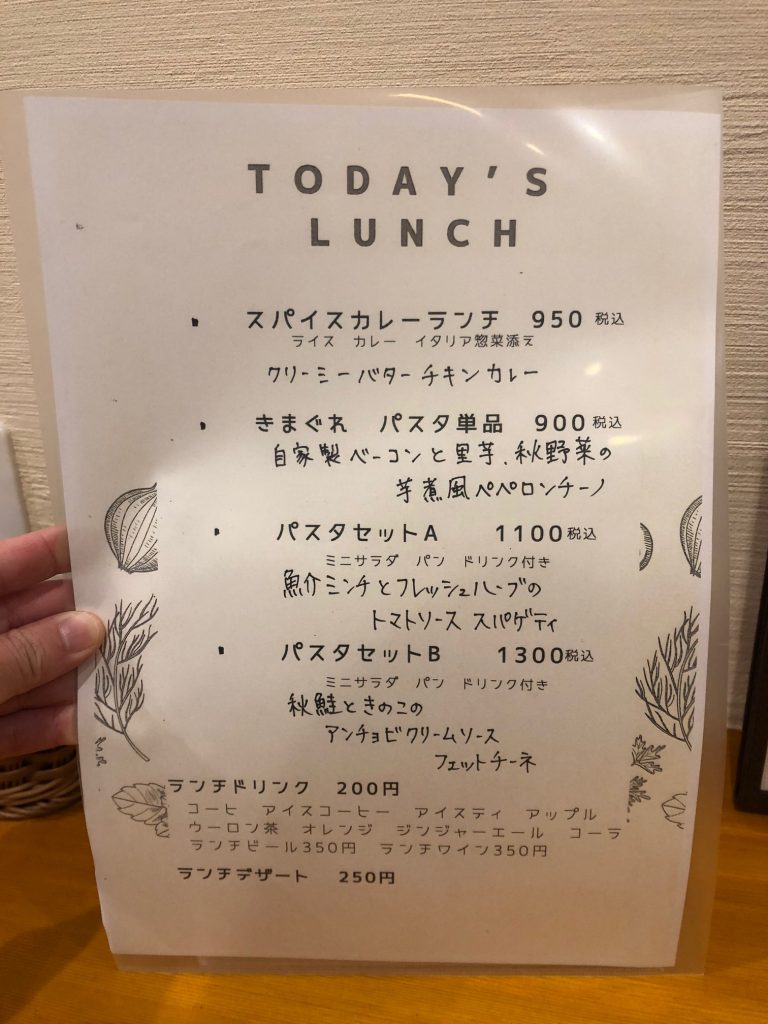 TODAY'S
LUNCH
・ スパイスカレーランチ 950 税込
ライス カレー イタリア惣菜添え
クリーミーバターチキンカレー
・ きまぐれ パスタ単品 900 税込
自家製ベーコンと里芋、秋野菜の
芋煮風ペペロンチーノ
・ パスタセットA 1100税込
ミニサラダ パン ドリンク付き
魚介ミンチとフレッシュハーブの
トマトソース スパゲティ
・ パスタセットB 1300税込
ミニサラダ パン ドリンク付き
秋鮭ときのこの
アンチョビクリームソース
フェットチーネ
ランチドリンク 200円
コーヒ アイスコーヒー アイスティ アップル
ウーロン茶 オレンジ ジンジャーエール コーラ
ランチビール350円 ランチワイン350円
ランチデザート 250円